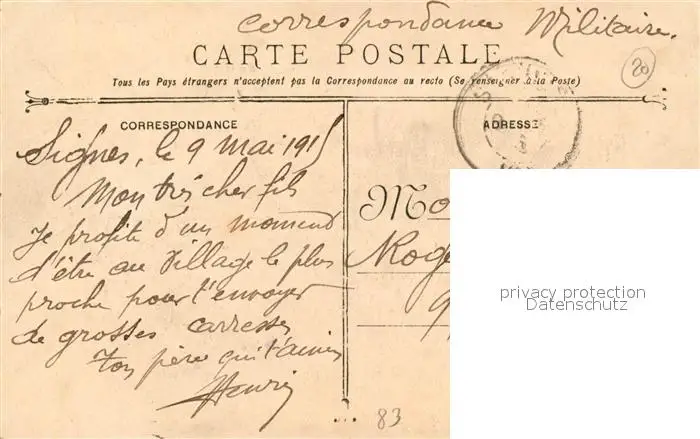 Correspondance Militaire.
CARTE POSTALE
Tous les Pays étrangers n'acceptent pas la Correspondance au recto (Se renseigner à la Poste)
20
CORRESPONDANCE
ADRESSE
Signes, le 9 mai 1915
Mon très cher fils
Je profite d'un moment
d'être au village le plus
proche pour t'envoyer
de grosses carresses
Ton père qui t'aime
Henri
Mo
Roge
9
privacy protection
Datenschutz
83